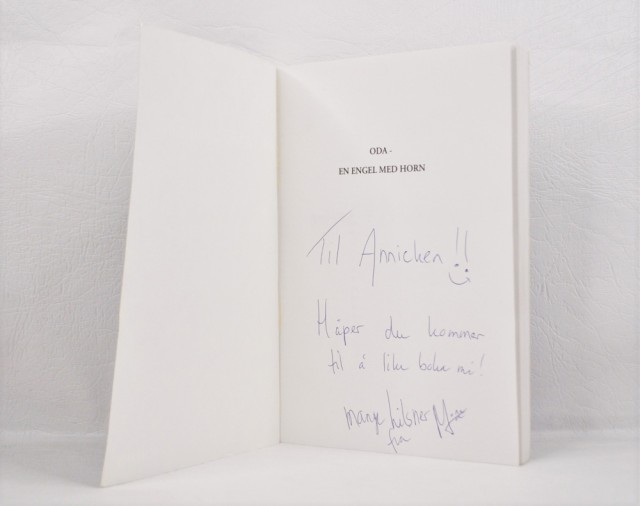 ODA -
EN ENGEL MED HORN
Til Annicken!!
Håper du kommer
til å like boka mi!
mange hilsner
fra